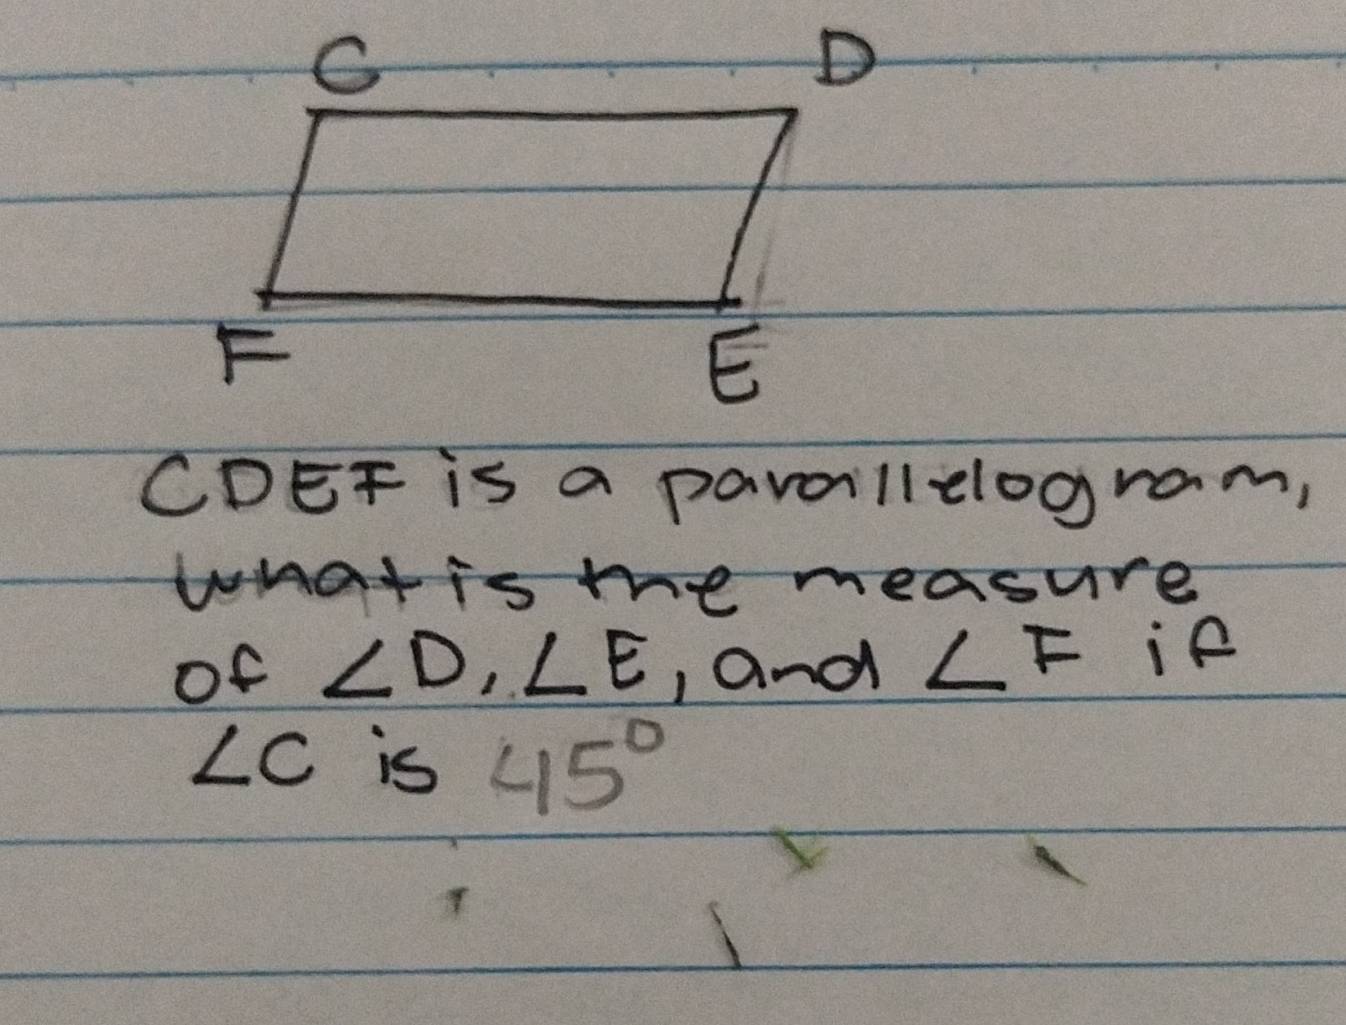 C D
F E
CDEF is a parallelogram,
what is the measure
of ∠D, ∠E, and ∠F if
∠C is 45°